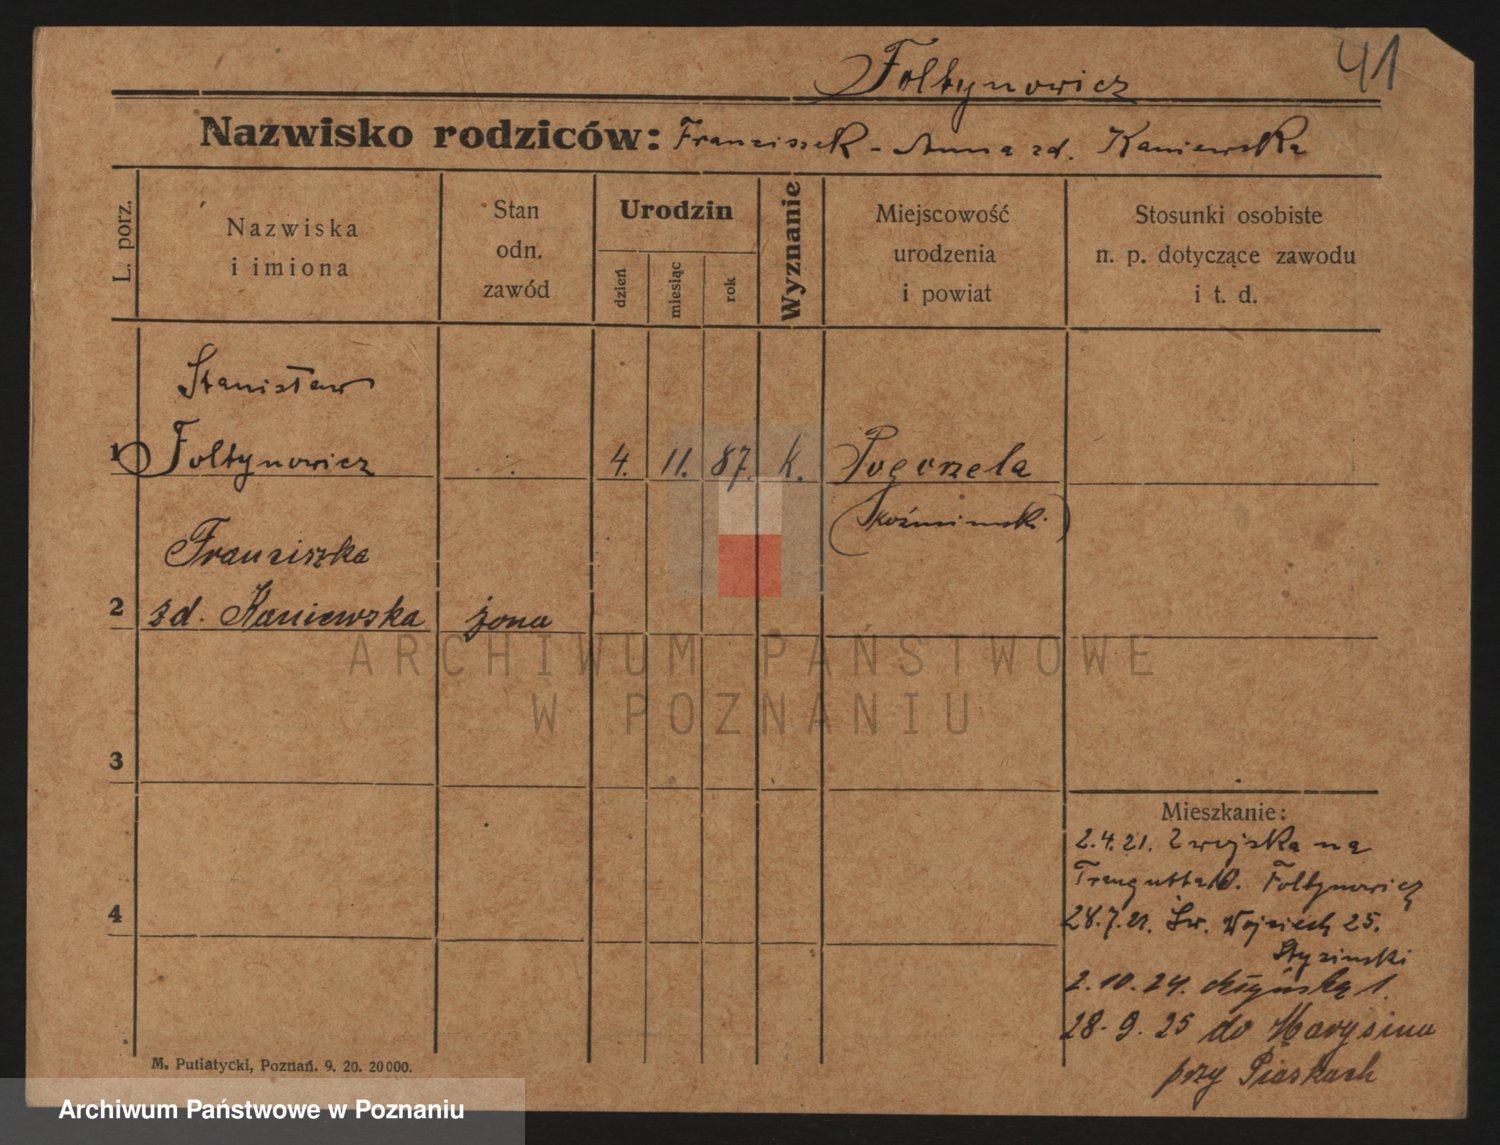 41
Foltynowicz
Nazwisko rodziców: Franciszek - Anna zd. Kaniewska
L. porz.
Nazwiska
i imiona
Stan
odn.
zawód
Urodzin
dzień
miesiąc
rok
Wyznanie
Miejscowość
urodzenia
i powiat
Stosunki osobiste
n. p. dotyczące zawodu
i t. d.
Stanisław
1 Foltynowicz 4. 11. 87. k. Pogorzela
(koźmiński)
Franciszka
2 zd. Kaniewska żona
3
4
Mieszkanie:
2.4.21. Z wojska na
Traugutta 10. Foltynowicz
28.7.21. Św. Wojciech 25.
2.10.24. 1.
28.9.25 do Marysina
przy Piaskach
M. Putiatycki, Poznań. 9. 20. 20000.
ARCHIWUM PAŃSTWOWE
W POZNANIU
Archiwum Państwowe w Poznaniu